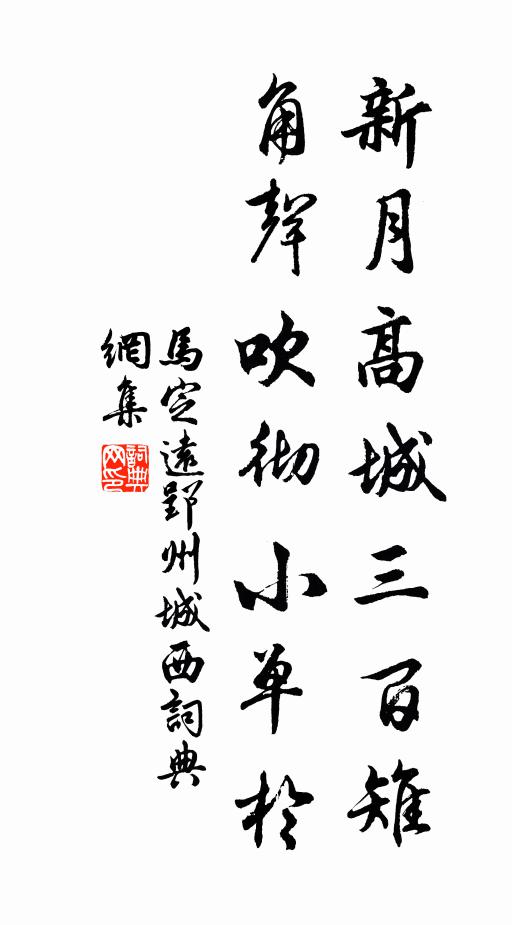 新月高城三百雉
角聲吹彻小单於
馬定遠郢州城西詞典
網集
詞典
网印